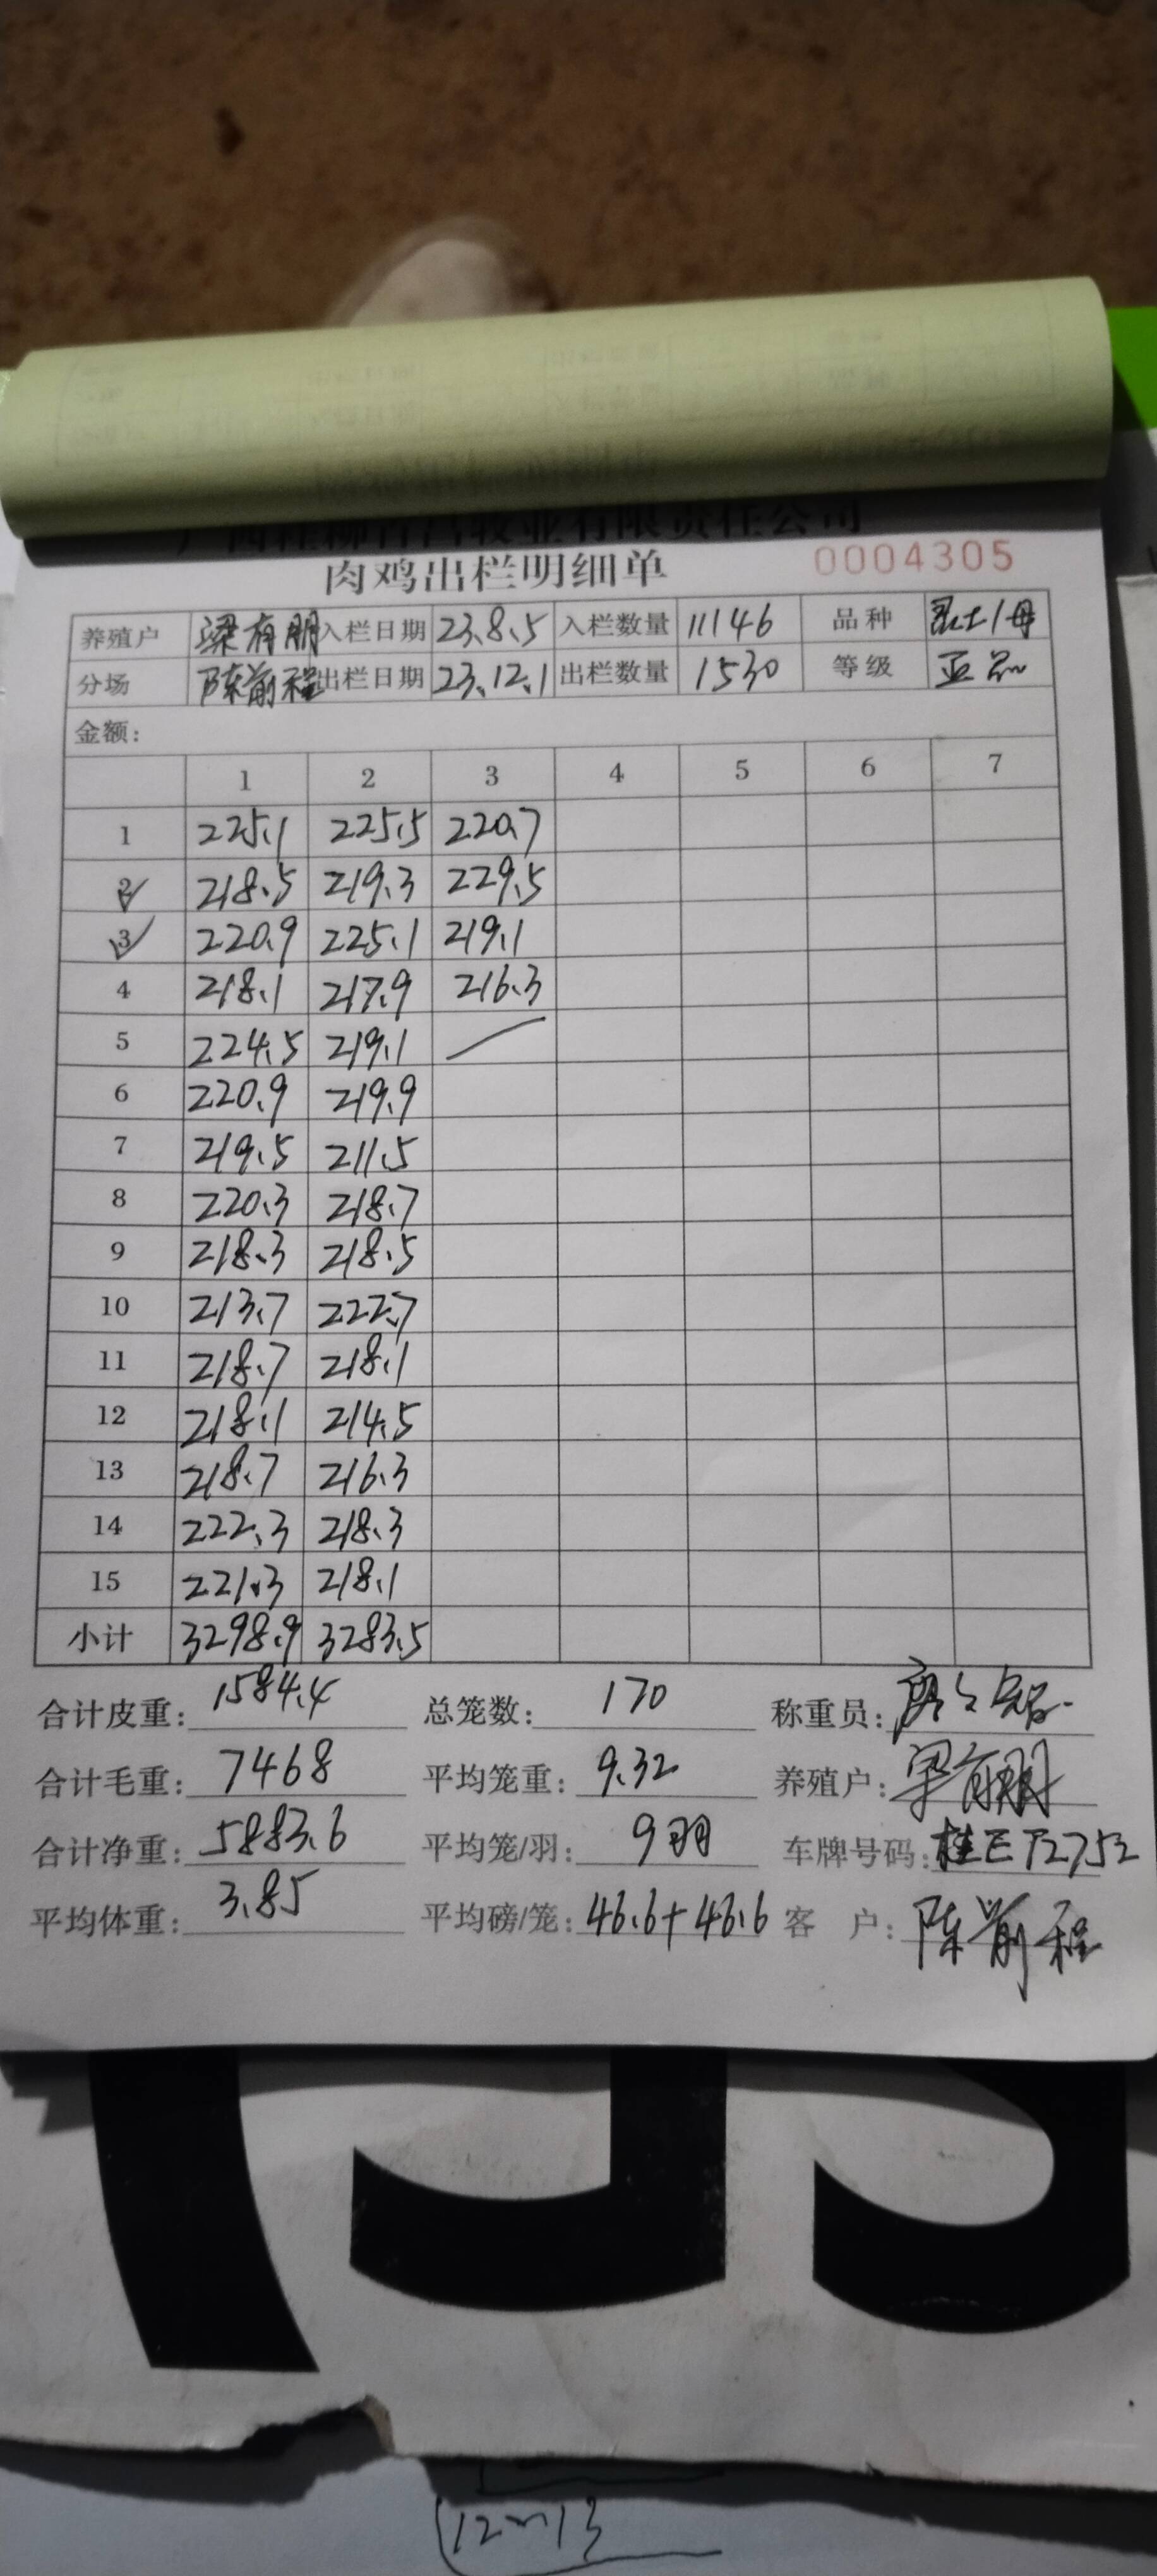 肉鸡出栏明细单 0004305
养殖户 梁有朋 入栏日期 23.8.5 入栏数量 11146 品种
分场 陈前程 出栏日期 23.12.1 出栏数量 1530 等级 亚品
金额:
1 2 3 4 5 6 7
1 225.1 225.5 220.7
2 218.5 219.3 229.5
3 220.9 225.1 219.1
4 218.1 217.9 216.3
5 224.5 219.1
6 220.9 219.9
7 219.5 211.5
8 220.3 218.7
9 218.3 218.5
10 213.7 222.7
11 218.7 218.1
12 218.1 214.5
13 218.7 216.3
14 222.3 218.3
15 221.3 218.1
小计 3298.9 3283.5
合计皮重: 1584.4 总笼数: 170 称重员:
合计毛重: 7468 平均笼重: 9.32 养殖户: 梁有朋
合计净重: 5883.6 平均笼/羽: 9羽 车牌号码:
平均体重: 3.85 平均磅/笼: 46.6+46.6 客 户: 陈前程